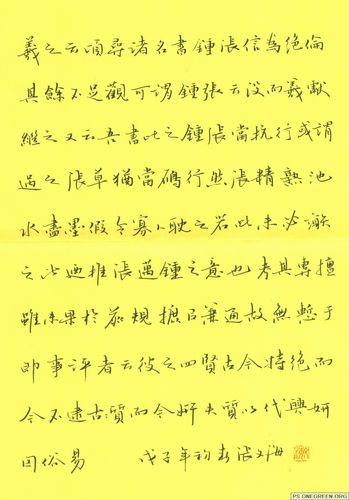 羲之云頃尋諸名書鍾張信為絕倫
其餘不足觀可謂鍾張云沒而羲獻
繼之又云吾書比之鍾張當抗行或謂
過之張草猶當行然張精熟池
水盡墨假令寡人耽之若此未必謝
之此迺推張邁鍾之意也考其專擅
雖未果於前規摭以兼通故無慙于
即事評者云彼之四賢古今特絕而
今不逮古質而今妍夫質以代興妍
因俗易 戊子年初春張海
PS.ONEGREEN.ORG